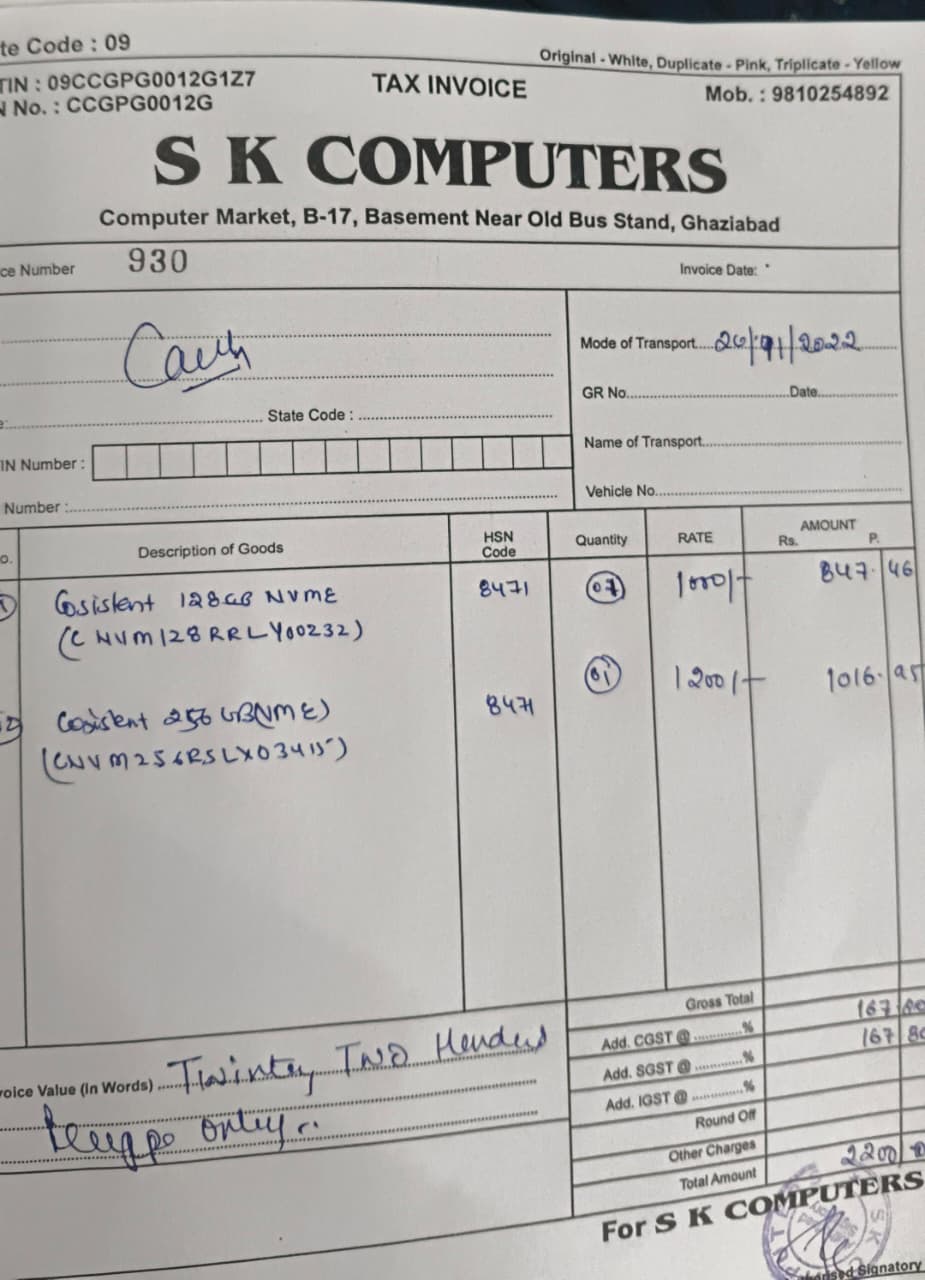 te Code : 09
Original - White, Duplicate - Pink, Triplicate - Yellow
TIN : 09CCGPG0012G1Z7
TAX INVOICE
Mob. : 9810254892
N No. : CCGPG0012G
S K COMPUTERS
Computer Market, B-17, Basement Near Old Bus Stand, Ghaziabad
ce Number 930
Invoice Date:
Mode of Transport 26/ /2022
GR No. Date
State Code :
Name of Transport
IN Number :
Vehicle No.
Number :
o. Description of Goods HSN Code Quantity RATE AMOUNT Rs. P.
Cosistent 128GB NVME 8471 1000/- 847. 46
(CNVM128RRLY00232)
01 1200/- 1016. 95
2) Cosistent 256 GB 8471
(CNVM256RSLX03415)
Gross Total
Add. CGST @ % 167 80
Add. SGST @ % 167 80
Add. IGST @ %
Round Off
Other Charges
Total Amount 2200
voice Value (In Words) Twinty Two Henderd
only
For S K COMPUTERS
Signatory